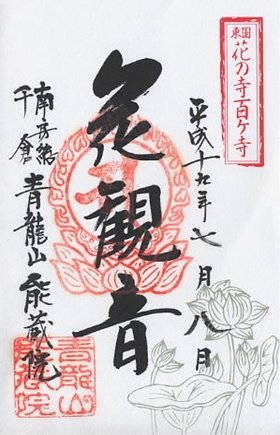 東国
花の寺百ヶ寺
平成十九年七月八日
花観音
南房総
千倉
青龍山 能蔵院
青龍山
能蔵院